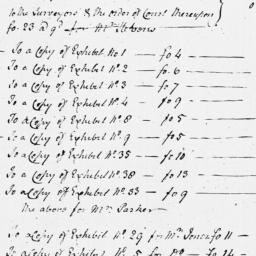 to the Surveyors & the order of Court thereupon
fo. 23 a 9d for Mr
To a Copy of Exhibit No 1 — fo 4 —
To a Copy of Exhibit No. 2 — fo. 6 —
To a Copy of Exhibit No. 3 — fo 7 —
To a Copy of Exhibit No. 4 — fo 9 —
To a Copy of Exhibit No 8 — fo 5 —
To a Copy of Exhibit No. 9 — fo 5 —
To a Copy of Exhibit No. 35 — fo 10 —
To a Copy of Exhibit No. 38 — fo 13 —
To a Copy of Exhibit No. 33 — fo 9 —
the above for Mr Parker —
To a Copy of Exhibit No. 29 for Mr Jones fo 11 —
To a Copy of Exhibit No. 5 for Do — fo 14 —